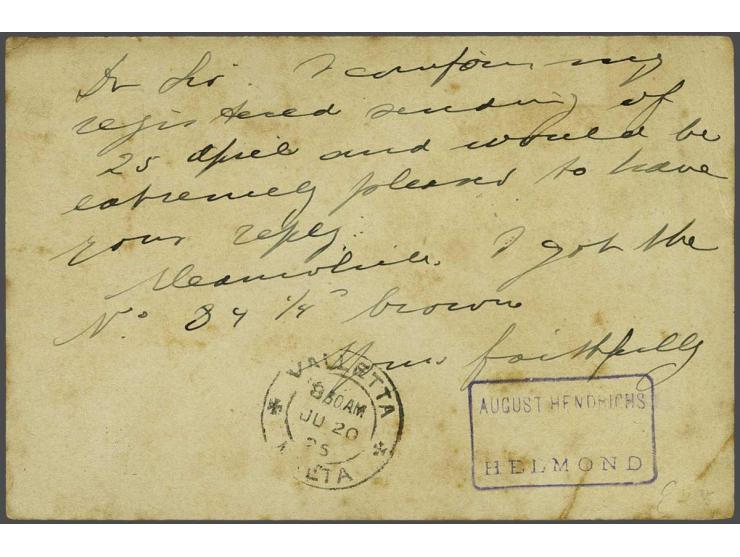 Dr Sir. I confirm my
registered sending of
25 April and would be
extremely pleased to have
your reply.
Meanwhile. I got the
No 84 1/4d brown
Yours faithfully
VALLETTA
8 30 AM
JU 20
MALTA
AUGUST HENDRICHS
HELMOND